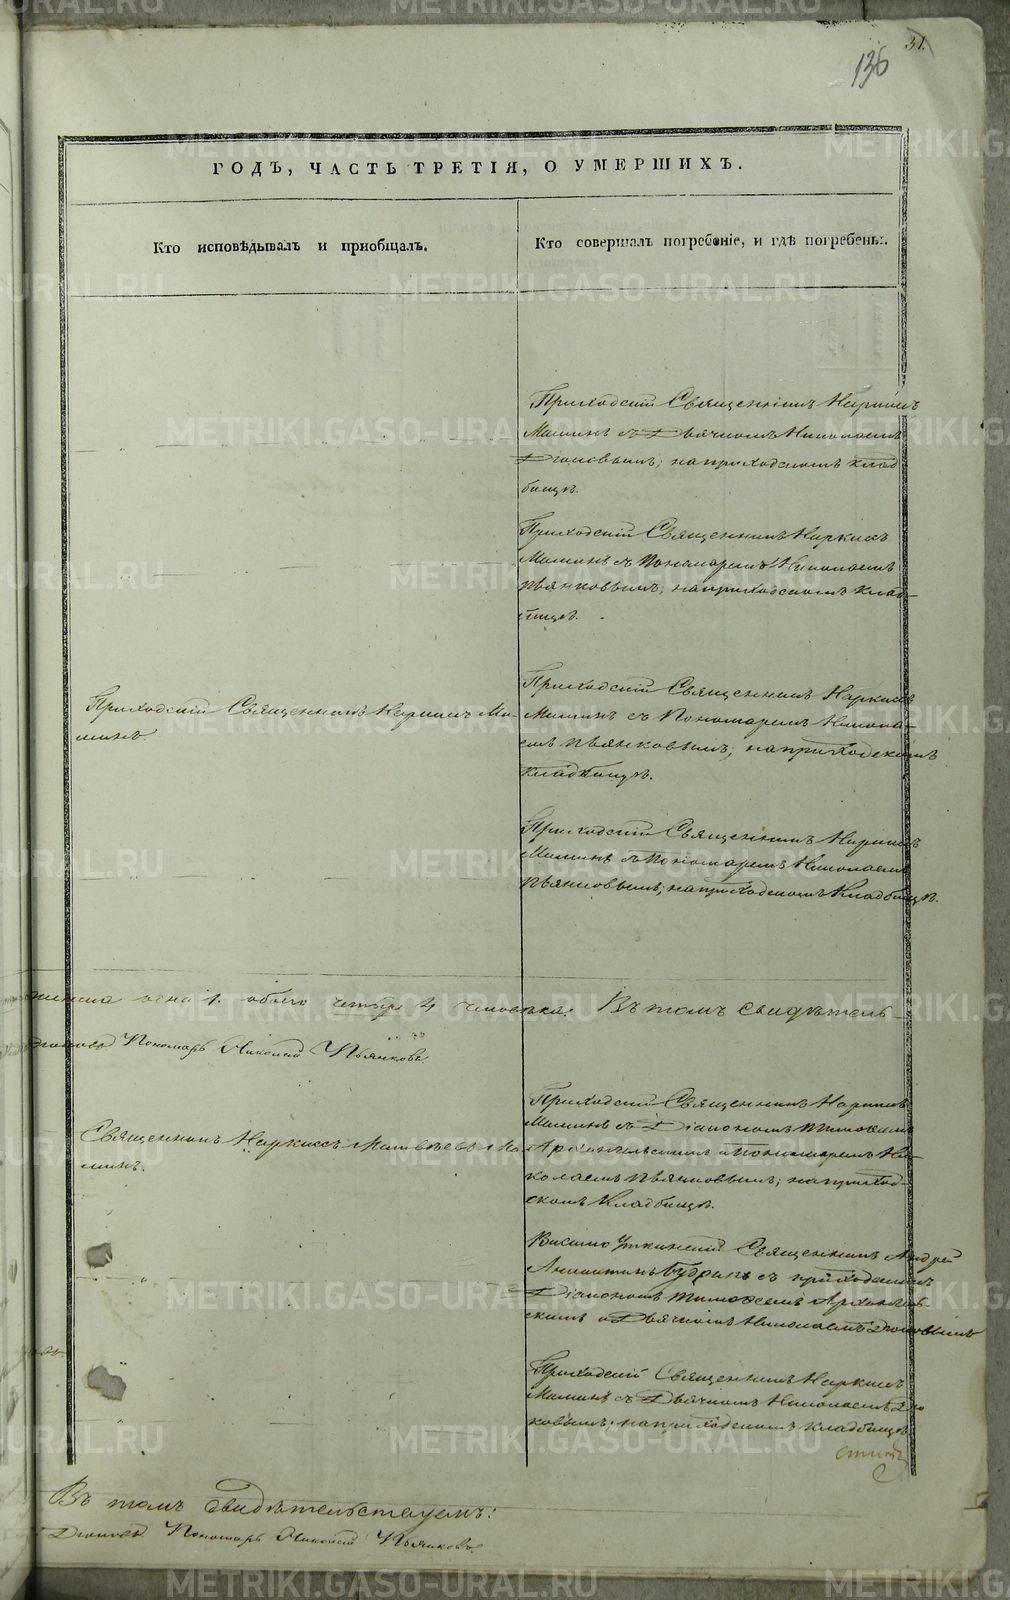 31.
136
ГОДЪ, ЧАСТЬ ТРЕТІЯ, О УМЕРШИХЪ.
Кто исповѣдывалъ и приобщалъ.
Кто совершалъ погребеніе, и гдѣ погребены.
Приходскій Священникъ Наркисъ
Маминъ съ Дьячкомъ Николаемъ
на приходскомъ клад
бищѣ.
Приходскій Священникъ Наркисъ
Маминъ съ Пономаремъ Николаемъ
Пьянковымъ, на приходскомъ клад-
бищѣ.
Приходскій Священникъ Наркисъ Ма-
минъ.
Приходскій Священникъ Наркисъ
Маминъ съ Пономаремъ Никола-
емъ Пьянковымъ, на приходскомъ
кладбищѣ.
Приходскій Священникъ Наркисъ
Маминъ съ Пономаремъ Николаемъ
Пьянковымъ, на приходскомъ Кладбищѣ.
одна 1. обоего четыре 4 человѣка. Въ томъ свидѣтель-
Пономарь Николай Пьянковъ.
Приходскій Священникъ Наркисъ
Маминъ съ Діакономъ Тимофеемъ
Архангельскимъ и Пономаремъ Ни-
колаемъ Пьянковымъ, на приход-
скомъ Кладбищѣ.
Священникъ Наркисъ Матвѣевъ Ма-
минъ.
Висимо Уткинскій Священникъ Андрей
съ приходскимъ
Діакономъ Тимофеемъ Архангель-
скимъ и Дьячкомъ Николаемъ
Приходскій Священникъ Наркисъ
Маминъ съ Дьячкомъ Николаемъ
ковымъ, на приходскомъ кладбищѣ
Въ томъ свидѣтельствуемъ:
Пономарь Николай Пьянковъ.
METRIKI.GASO-URAL.RU